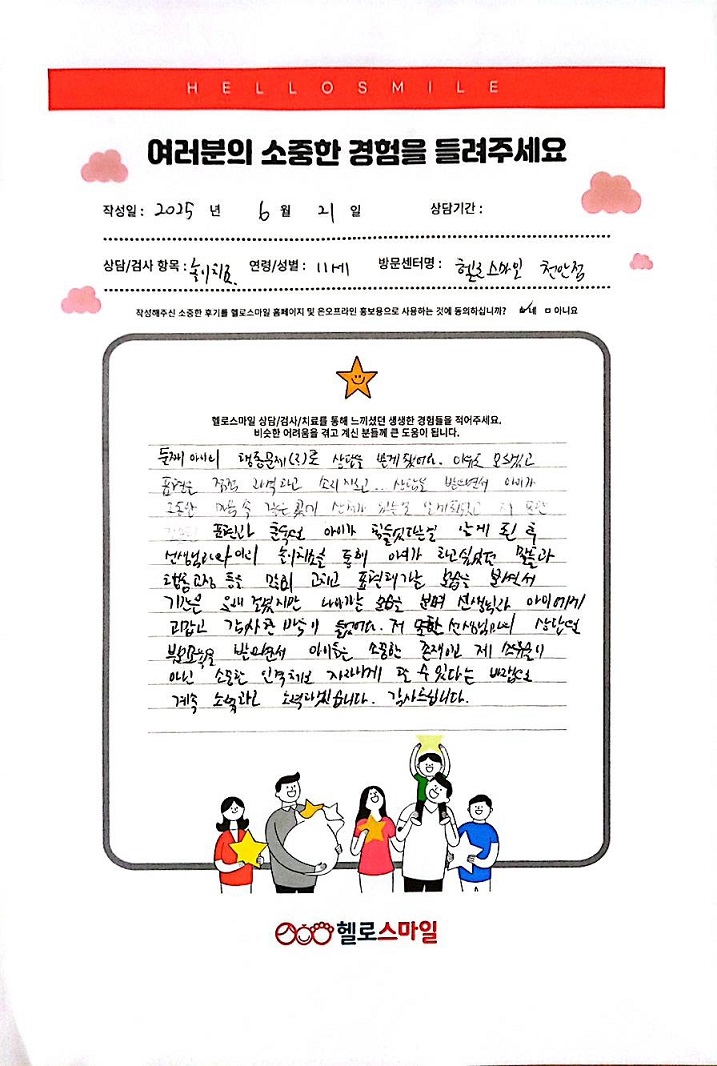 HELLOSMILE
여러분의 소중한 경험을 들려주세요
작성일 : 2025 년 6 월 21 일 상담기간 :
상담/검사 항목 : 놀이치료. 연령/성별 : 11세 방문센터명 : 헬로스마일 천안점
작성해주신 소중한 후기를 헬로스마일 홈페이지 및 온오프라인 홍보용으로 사용하는 것에 동의하십니까? 네 아니요
헬로스마일 상담/검사/치료를 통해 느끼셨던 생생한 경험들을 적어주세요.
비슷한 어려움을 겪고 계신 분들께 큰 도움이 됩니다.
둘째 아이의 행동문제로 상담을 받게 됐어요. 이유도 모르겠고
표현을 점점 과격하고 소리지르고.. 상담을 받으면서 아이가
그동안 마음 속 깊은 곳에 상처가 있는걸 알게되었고
표현과 훈육에 아이가 힘들었다는걸 알게 된 후
선생님과 아이의 놀이치료를 통해 아이가 하고싶었던 말들과
행동교정 등을 많이 고치고 표현해가는 모습을 보면서
기간은 오래 걸렸지만 나아가는 모습을 보며 선생님과 아이에게
고맙고 감사한 마음이 들었어요. 저 또한 선생님과의 상담및
부모교육을 받으면서 아이들은 소중한 존재이고 제 소유물이
아닌 소중한 인격체로 자라나게 할 수 있다는 바람으로
계속 노력하겠습니다. 감사드립니다.
헬로스마일